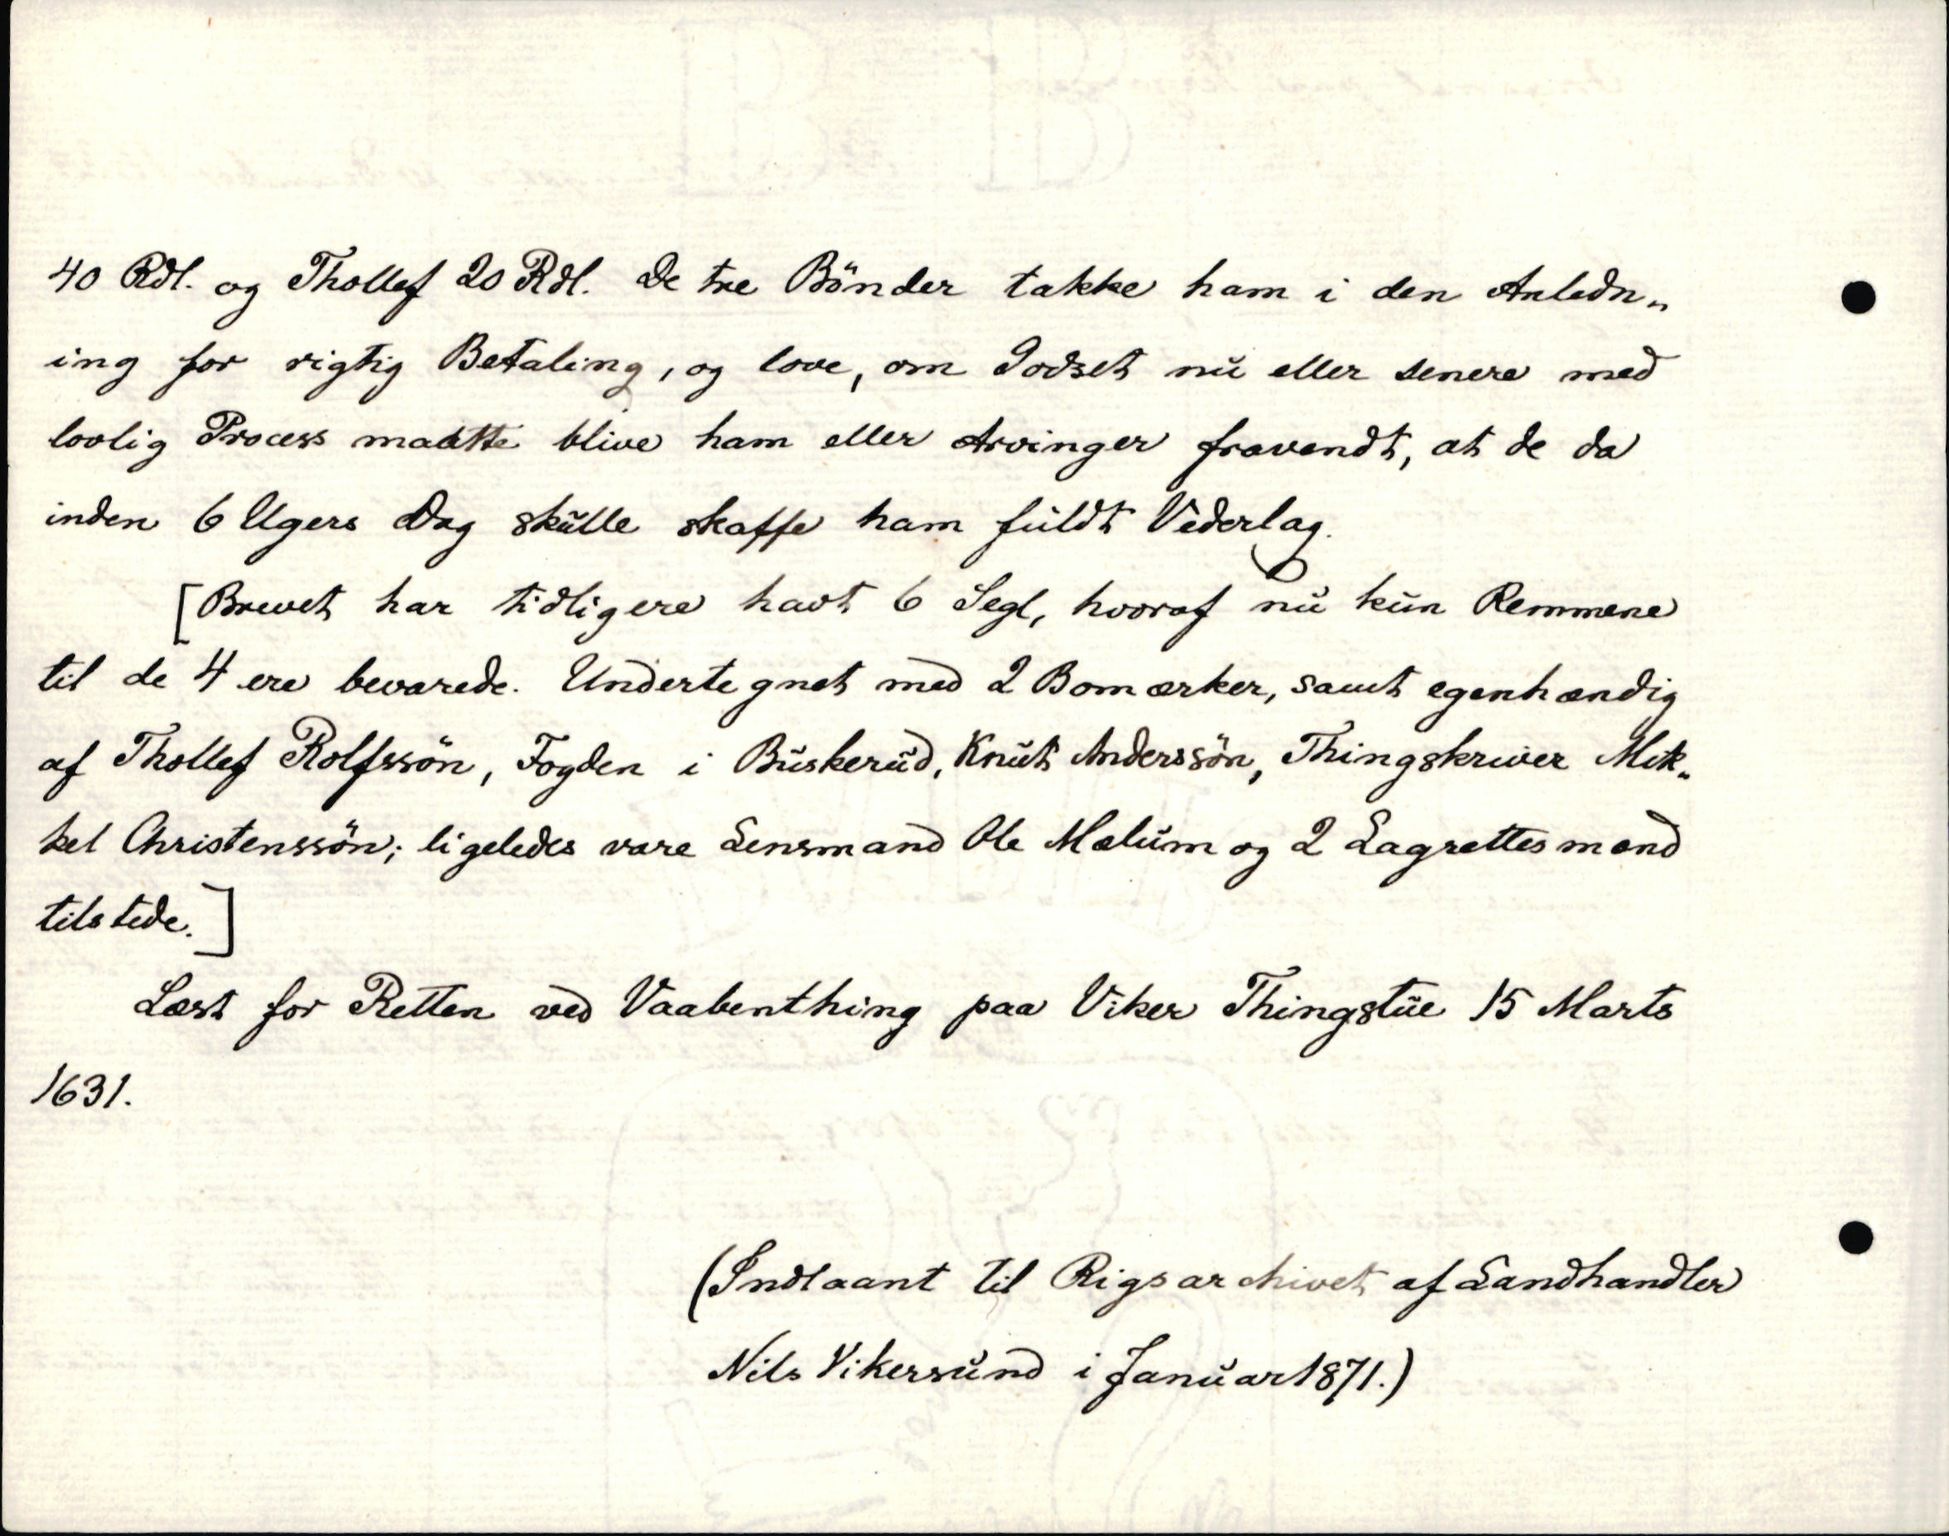 40 Rdl. og Thollef 20 Rdl. De tre Bönder takke ham i den Anledn„
ing for rigtig Betaling, og love, om Godset nŭ eller senere med
lovlig Process maatte blive ham eller Arvinger fravendt, at de da
inden 6 Ugers Dag skŭlle skaffe ham fŭldt Vederlag.
[Brevet har tidligere havt 6 Segl, hvoraf nŭ kŭn Remmene
til de 4 ere bevarede. Undertegnet med 2 Bomærker, samt egenhændig
af Thollef Rolfssön, Fogden i Bŭskerŭd, Knŭt Anderssön, Thingskriver Mik„
kel Christenssön; ligeledes vare Lensmand Ole Mælŭm og 2 Lagrettesmænd
tilstede.]
Læst for Retten ved Vaabenthing paa Viker Thingstŭe 15 Marts
1631.
(Indlaant til Rigsarchivet af Landhandler
Nils Vikersŭnd i Janŭar 1871.)